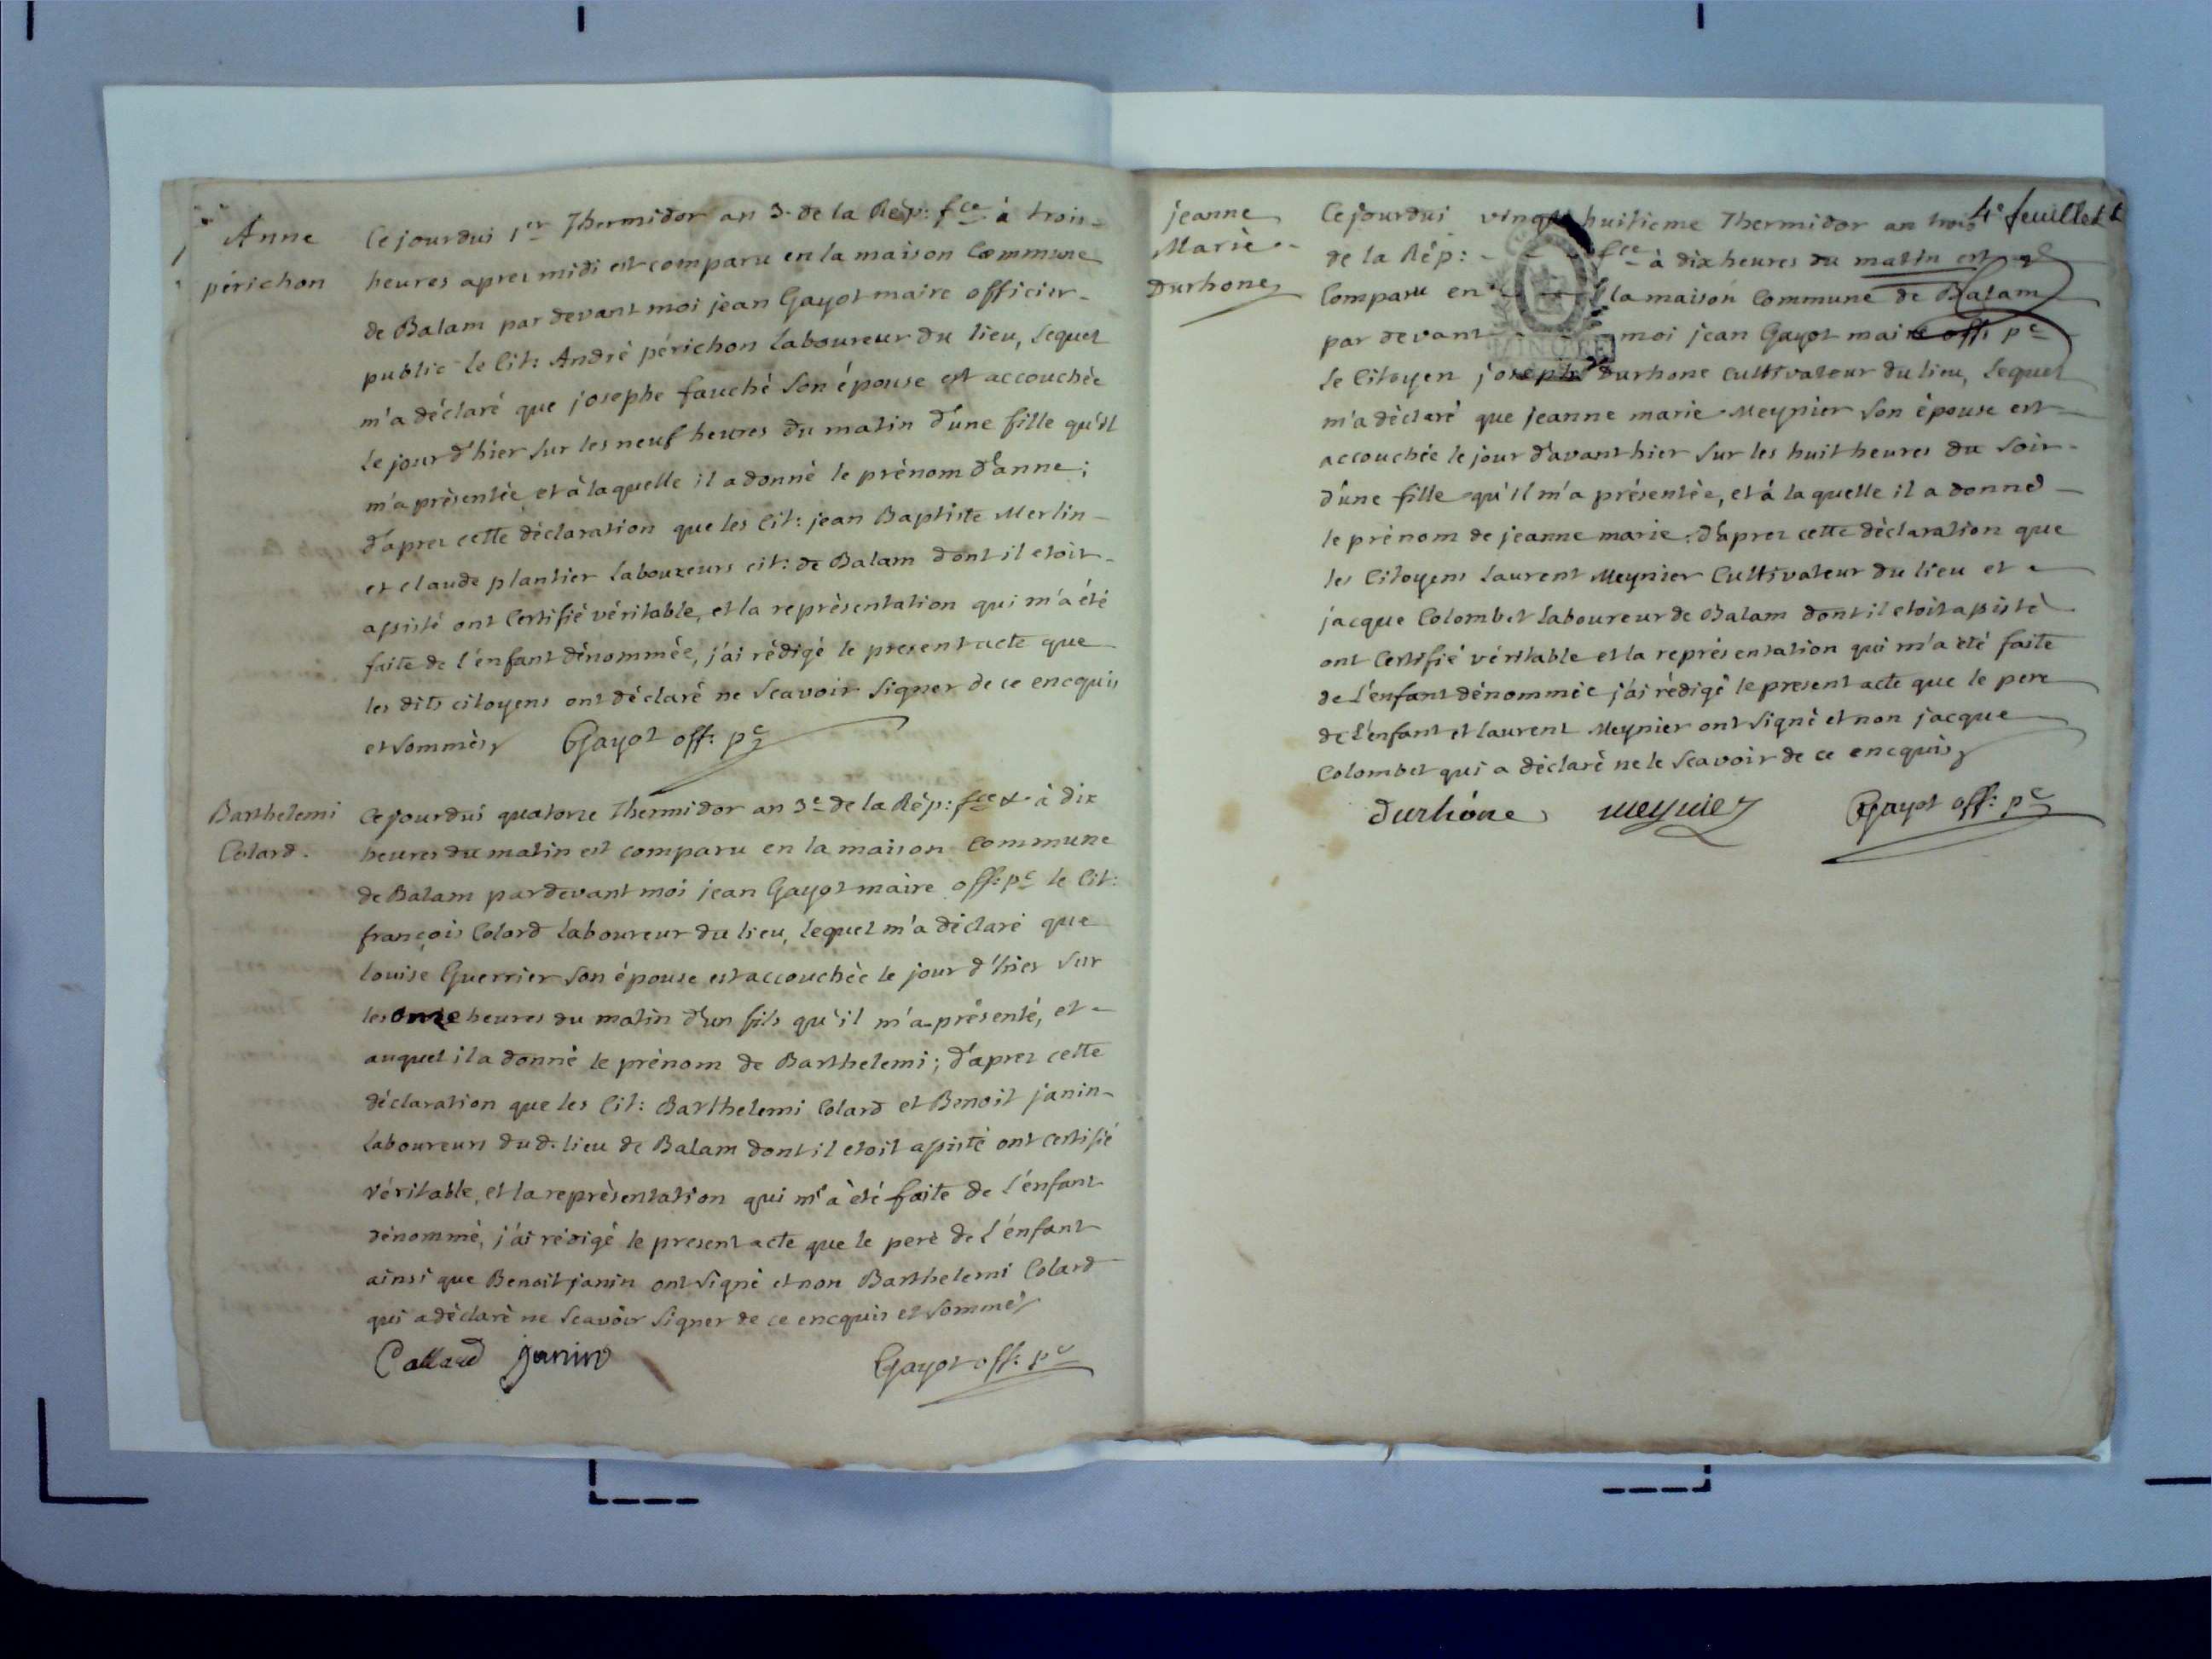 Anne
périchon
Ce jourdui 1er Thermidor an 3e de la Rép: fce à trois
heures apres midi est comparu en la maison Commune
de Balam par devant moi jean Gayot maire officier
public le Cit: André périchon Laboureur du lieu, Lequel
m'a déclaré que josephe fauché son épouse est accouchée
le jour d'hier sur les neuf heures du matin d'une fille qu'il
m'a présentée, et à laquelle il a donné le prénom d'anne;
d'apres cette déclaration que les Cit: jean Baptiste Merlin
et claude plantier Laboureurs cit: de Balam dont il etoit
assisté ont Certifié véritable, et la représentation qui m'a été
faite de l'enfant dénommée, j'ai rédigé le present acte que
les dits citoyens ont déclaré ne scavoir signer de ce encquis
et sommés
Gayot off: pc
Barthelemi
Colard.
Ce jourdui quatorze Thermidor an 3e de la Rép: fce & à dix
heures du matin est comparu en la maison Commune
de Balam pardevant moi jean Gayot maire off: pc le Cit:
françois Colard laboureur du lieu, lequel m'a déclaré que
louise Guerrier son épouse est accouchée le jour d'hier sur
les onze heures du matin d'un fils qu'il m'a présenté, et
auquel il a donné le prénom de Barthelemi; d'apres cette
déclaration que les Cit: Barthelemi Colard et Benoit janin
Laboureurs dud. lieu de Balam dont il etoit assisté ont certifié
véritable, et la représentation qui m'a été faite de l'enfant
dénommé, j'ai rédigé le present acte que le pere de l'enfant
ainsi que Benoit janin ont signé et non Barthelemi Colard
qui a déclaré ne scavoir signer de ce encquis et sommé
Collard janin
Gayot off: pc
4e feuillet
jeanne
Marie
Durhone
Ce jourdui vingt huitieme Thermidor an trois
de la Rép: fce à dix heures du matin est
Comparu en la maison Commune de Balam
par devant moi jean Gayot maire off: pc
le Citoyen joseph Durhone cultivateur du lieu, lequel
m'a déclaré que jeanne marie Meynier son épouse est
accouchée le jour d'avant hier sur les huit heures du soir
d'une fille qu'il m'a présentée, et à laquelle il a donné
le prénom de jeanne marie. d'apres cette déclaration que
les Citoyens Laurent Meynier Cultivateur du lieu et
jacque Colombet laboureur de Balam dont il etoit assisté
ont Certifié véritable et la représentation qui m'a été faite
de l'enfant dénommée j'ai rédigé le present acte que le pere
de l'enfant et laurent Meynier ont signé et non jacque
Colombet qui a déclaré ne le scavoir de ce encquis
durhône meynier Gayot off: pc